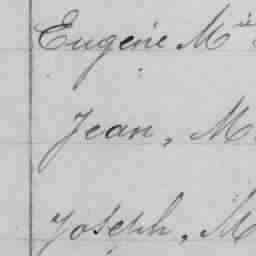 Eugène M^ie
Jean, M
Joseph, M